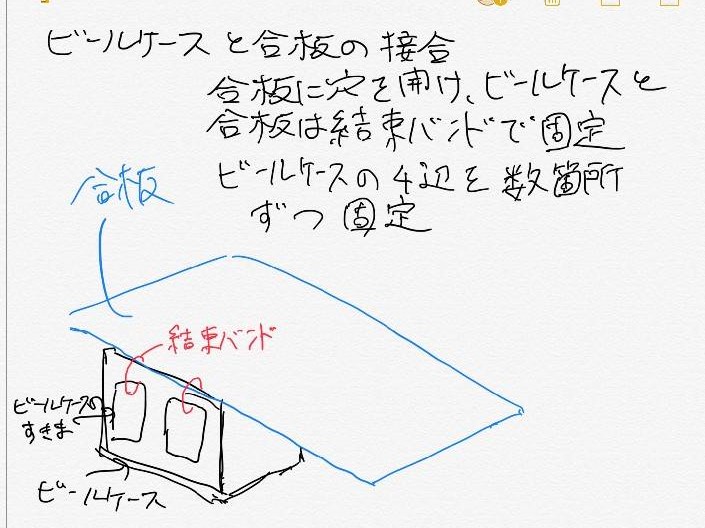 ビールケースと合板の接合
合板に穴を開け、ビールケースと
合板は結束バンドで固定
ビールケースの4辺を数箇所
ずつ固定
合板
結束バンド
ビールケースの
すきま
ビールケース